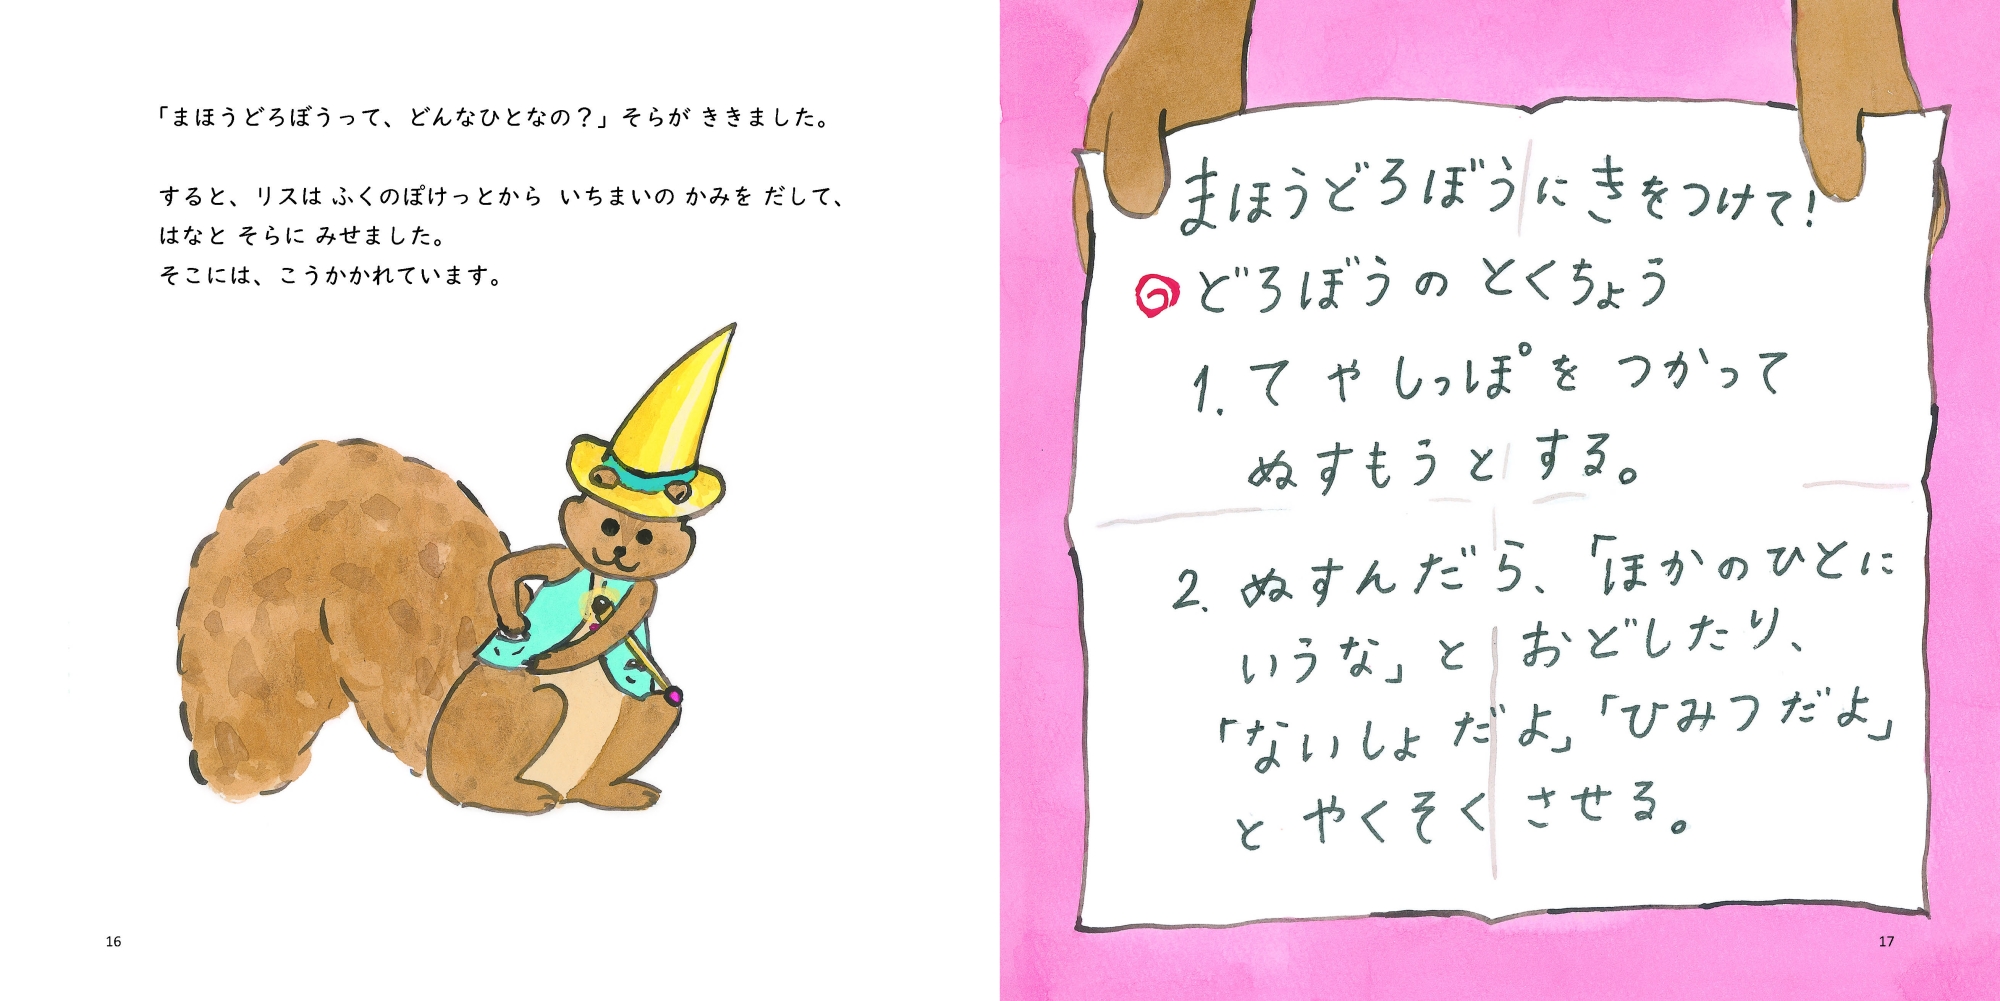 「まほうどろぼうって、どんなひとなの？」そらが ききました。
すると、リスは ふくのぽけっとから いちまいの かみを だして、
はなと そらに みせました。
そこには、こうかかれています。
16
まほうどろぼうに きをつけて!
どろぼうの とくちょう
1. て や しっぽ を つかって
ぬすもうと する。
2. ぬすんだら、「ほかのひとに
いうな」と おどしたり、
「ないしょだよ」「ひみつだよ」
と やくそく させる。
17